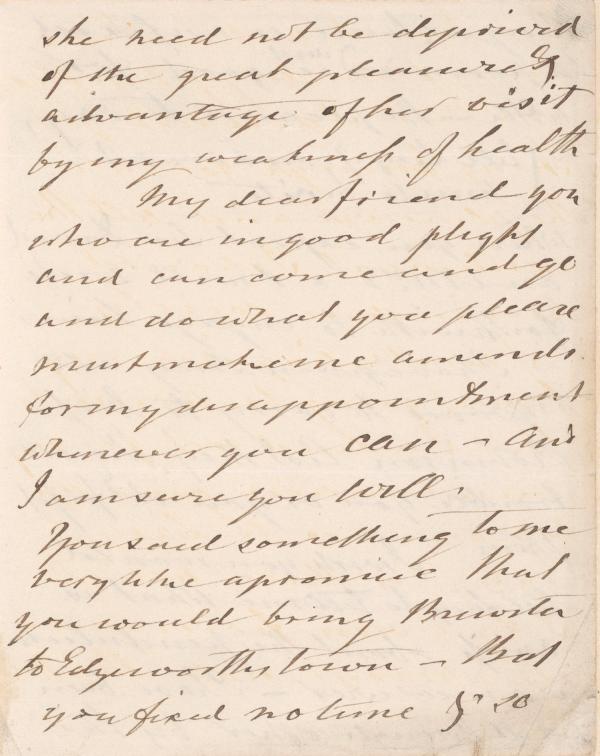 she need not be deprived
of the great pleasure &
advantage of her visit
by my weakness of health
My dear friend you
who are in good plight
and can come and go
and do what you please
must make me amends
for my disappointment
whenever you can – and
I am sure you will.
You said something to me
very like a promise that
you would bring Brewster
to Edgeworthstown – But
you fixed no time & so